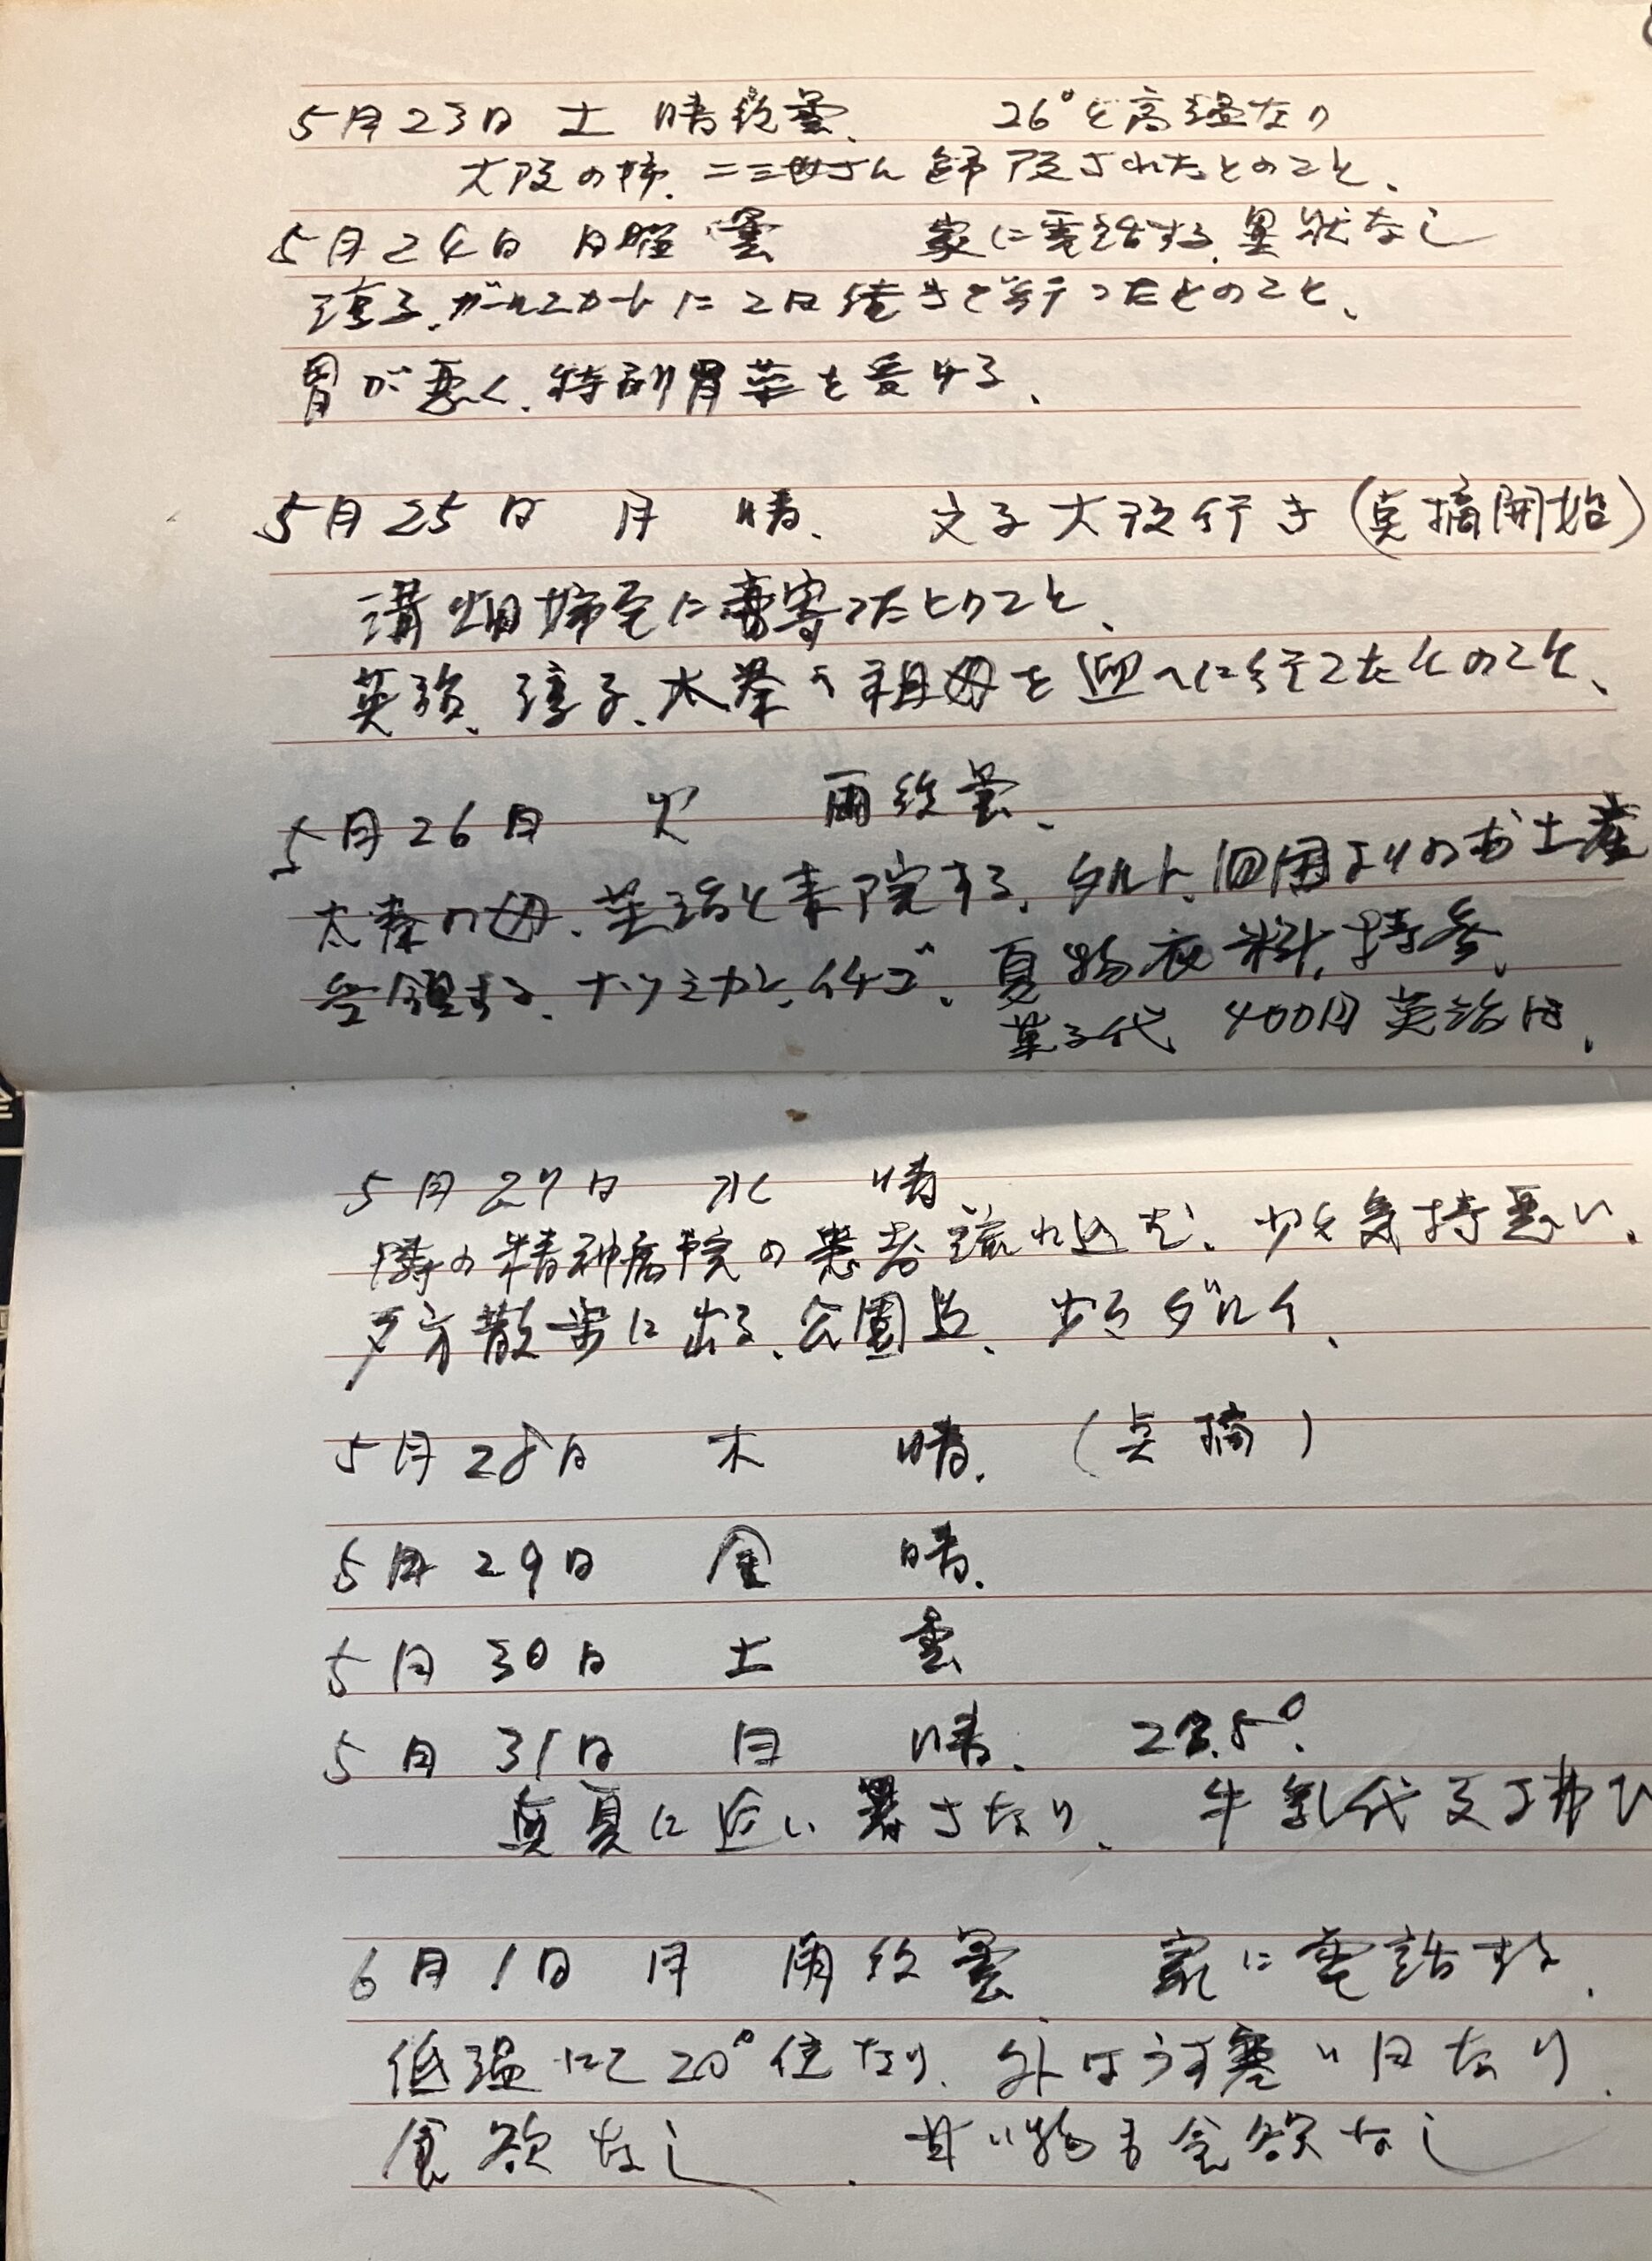 5月23日 土 晴後曇、 26°と高温なり
大阪の姉、二三世さん帰阪されたとのこと、
5月24日 日曜 曇 家に電話する、異状なし
淳子、ガールスカートに2日続きで行ったとのこと、
胃が悪く、特別胃薬を受ける、
5月25日 月 晴、 文子大阪行き(点摘開始)
溝畑姉宅に寄ったとのこと、
英治、淳子、太秦の祖母を迎へに行ったとのこと、
5月26日 火 雨後曇、
太秦の母、英治と来院する、タルト、四国よりのお土産
受領する、ナツミカン、イチゴ、夏物衣料、持参、
菓子代 400円 英治
5月27日 水 晴
隣の精神病院の患者流れ込む、少々気持悪い、
夕方散歩に出る、公園迄、少々ダルイ、
5月28日 木 晴、 (点摘)
5月29日 金 晴、
5月30日 土 曇
5月31日 日 晴、 28.5°、
真夏に近い暑さなり、 牛乳代支払ひ
6月1日 月 雨後曇 家に電話する、
低温にて20°位なり、外はうす寒い日なり、
食欲なし 、甘い物も食欲なし